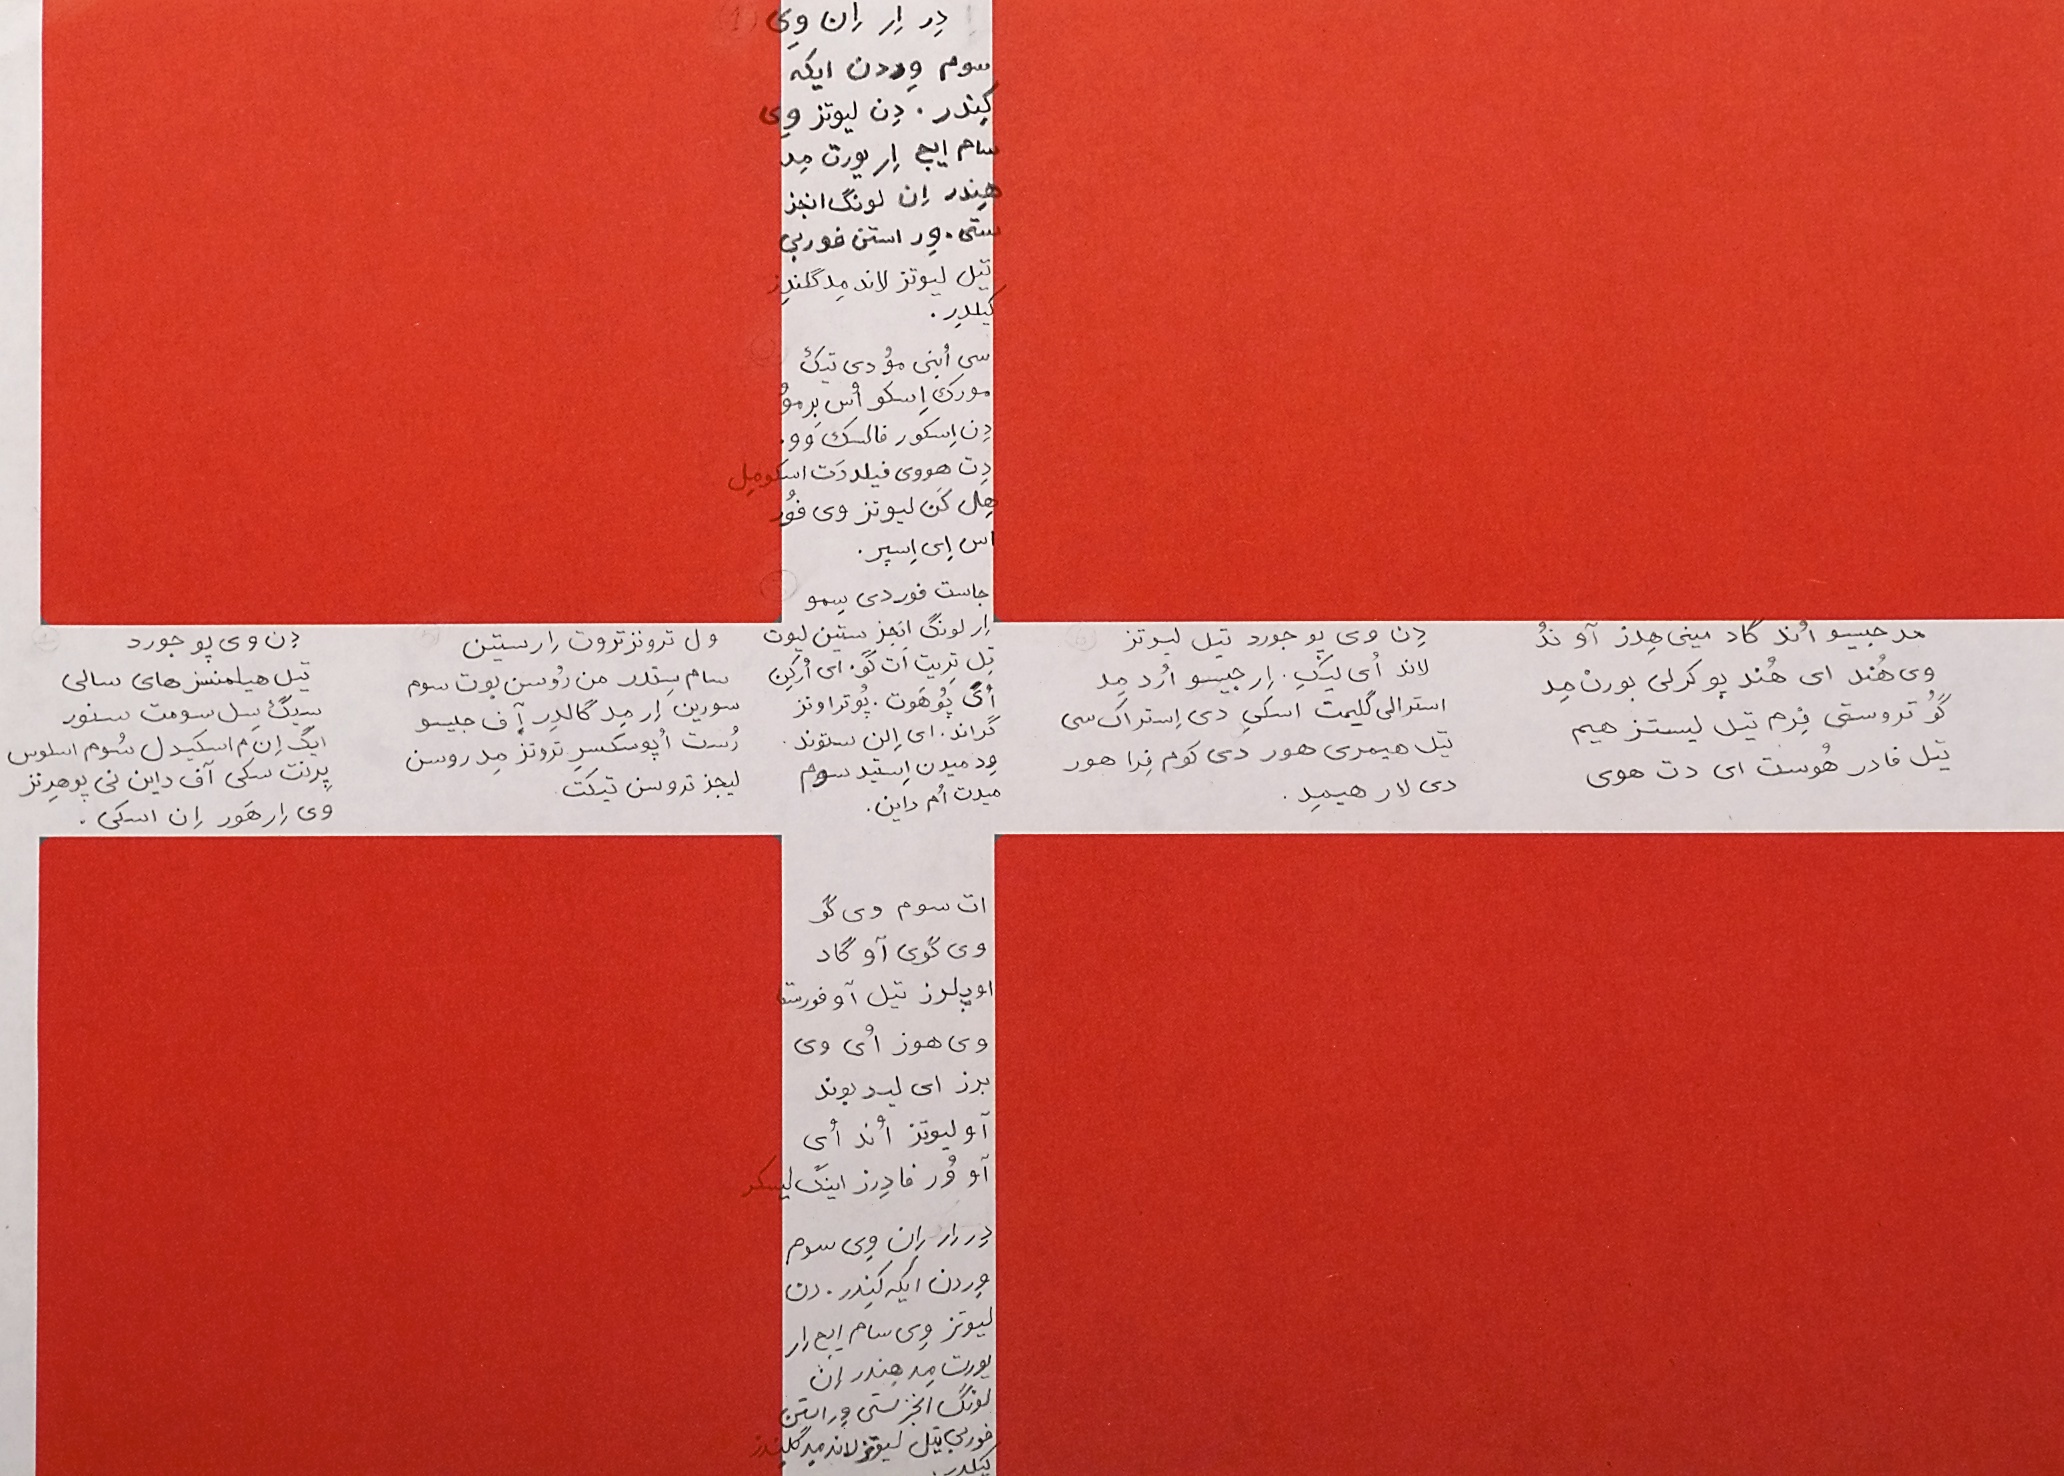 دِر اِر اِن وِی (1)
سوم وِردن ایکه
کِندر. دِن لیوتز وِی
سام ایجِ اِر بورت مِد
هِندر اِن لونگ انجز
ستی. وِر استن فوربی
تیل لیوتز لاند مِد گلندِز
کیلدِر.
سی اُبنی موُ دی تیکُ
مورک اِسکو اُس بِرموُ
دِن اِسکور فالسک وَو.
دِت هووی فیلد دَت اسکو مِل
هِل کَن لیوتز وی فوُر
اس اِی اِسپر.
جاست فور دی سِمو
اِر لونگ انَجز ستین لیوت
تِل تِریت اَت گوَ. ای اُرکِن
اُگ پوُ هَوت. پوُ تراونز
گراند. ای اِلن ستوند.
وِد میدن اِستید سوم
میدت اُم داین.
دِن وی پو جورد
تیل هیلمنسز های سالی
سیگ سِل سومت سنور
ایگ اِن م اسکیدل سُوم اسلوس
پرنت سکی آف داین نی پو هِرنز
وی اِر هَور اِن اسکی.
ول ترونز تروت اِر ستین
سام ستدر من رُوسن بوت سوم
سورین اِر مِد گالدِر آف جیسو
رُست اُپوسکسِر ترونز مِد روسن
لیجز تروسن تیکت
دِن وی پو جورد تیل لیوتز
لاند اُی لیکِ. اِر جیسو اُرد مِد
استرالی گلیمت اسکیِ دی اِستراک سی
تیل هیمری هور دی کوم فِرا هور
دی لار هیمِد.
مد جیسو اُند گاد مینی هِلدز آو ندُ
وی هُند ای هُند پو کرلی بورن مِد
گوُ تروستی فِرم تیل لیستز هیم
تیل فادر هُوست ای دت هوی
ات سوم وی گو
وی گوی آو گاد
اوپلرز تیل آو فورستا
وی هوز اُی وی
برز ای لید بوند
آو لیوتز اُند اُی
آو وُر فادِرز اینگ لیسکر
دِر اِر اِن وِی سوم
وِردن ایکه کِندر. دن
لیوتز وِی سام ایج اِر
بورت مِد هِندر اِن
لونگ انجز ستی وِر استن
فوربی تیل لیوتز لاند مید گلیندز
کیلدر.